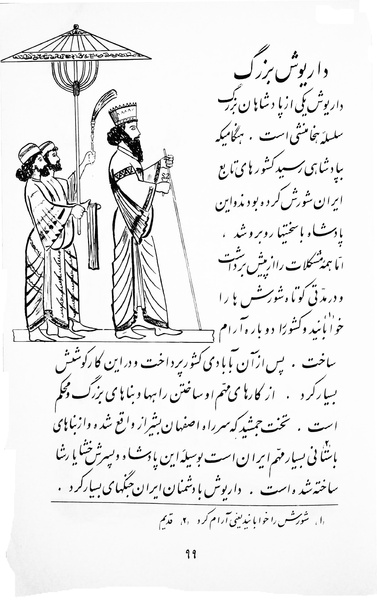 داریوش بزرگ
داریوش یکی از پادشاهان بزرگ
سلسلهٔ هخامنشی است . هنگامیکه
بپادشاهی رسید کشورهای تابع
ایران شورش کرده بودند و این
پادشاه با سختیها روبرو شد .
امّا همهٔ مشکلات را از پیش برداشت
و در مدّتی کوتاه شورش ها را
خوابانید۱ و کشور را دوباره آرام
ساخت . پس از آن بآبادی کشور پرداخت و در این کار کوشش
بسیار کرد . از کارهای مهّم او ساختن راهها و بناهای بزرگ و محکم
است . تخت جمشید که سر راه اصفهان بشیراز واقع شده و از بناهای
باستانی۲ بسیار مهّم ایران است بوسیلهٔ این پادشاه و پسرش خشایارشا
ساخته شده است . داریوش با دشمنان ایران جنگهای بسیار کرد .
۱. شورش را خوابانید یعنی آرام کرد ۲. قدیم
۹۹